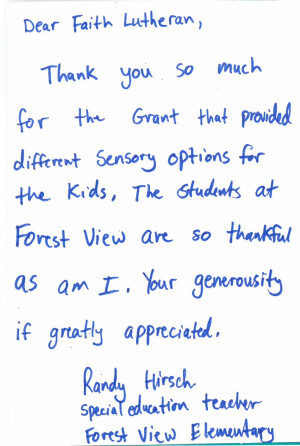 Dear Faith Lutheran,
Thank you so much
for the Grant that provided
different Sensory options for
the Kids. The Students at
Forest View are so thankful
as am I. Your generousity
if greatly appreciated.
Randy Hirsch
Special education teacher
Forest View Elementary